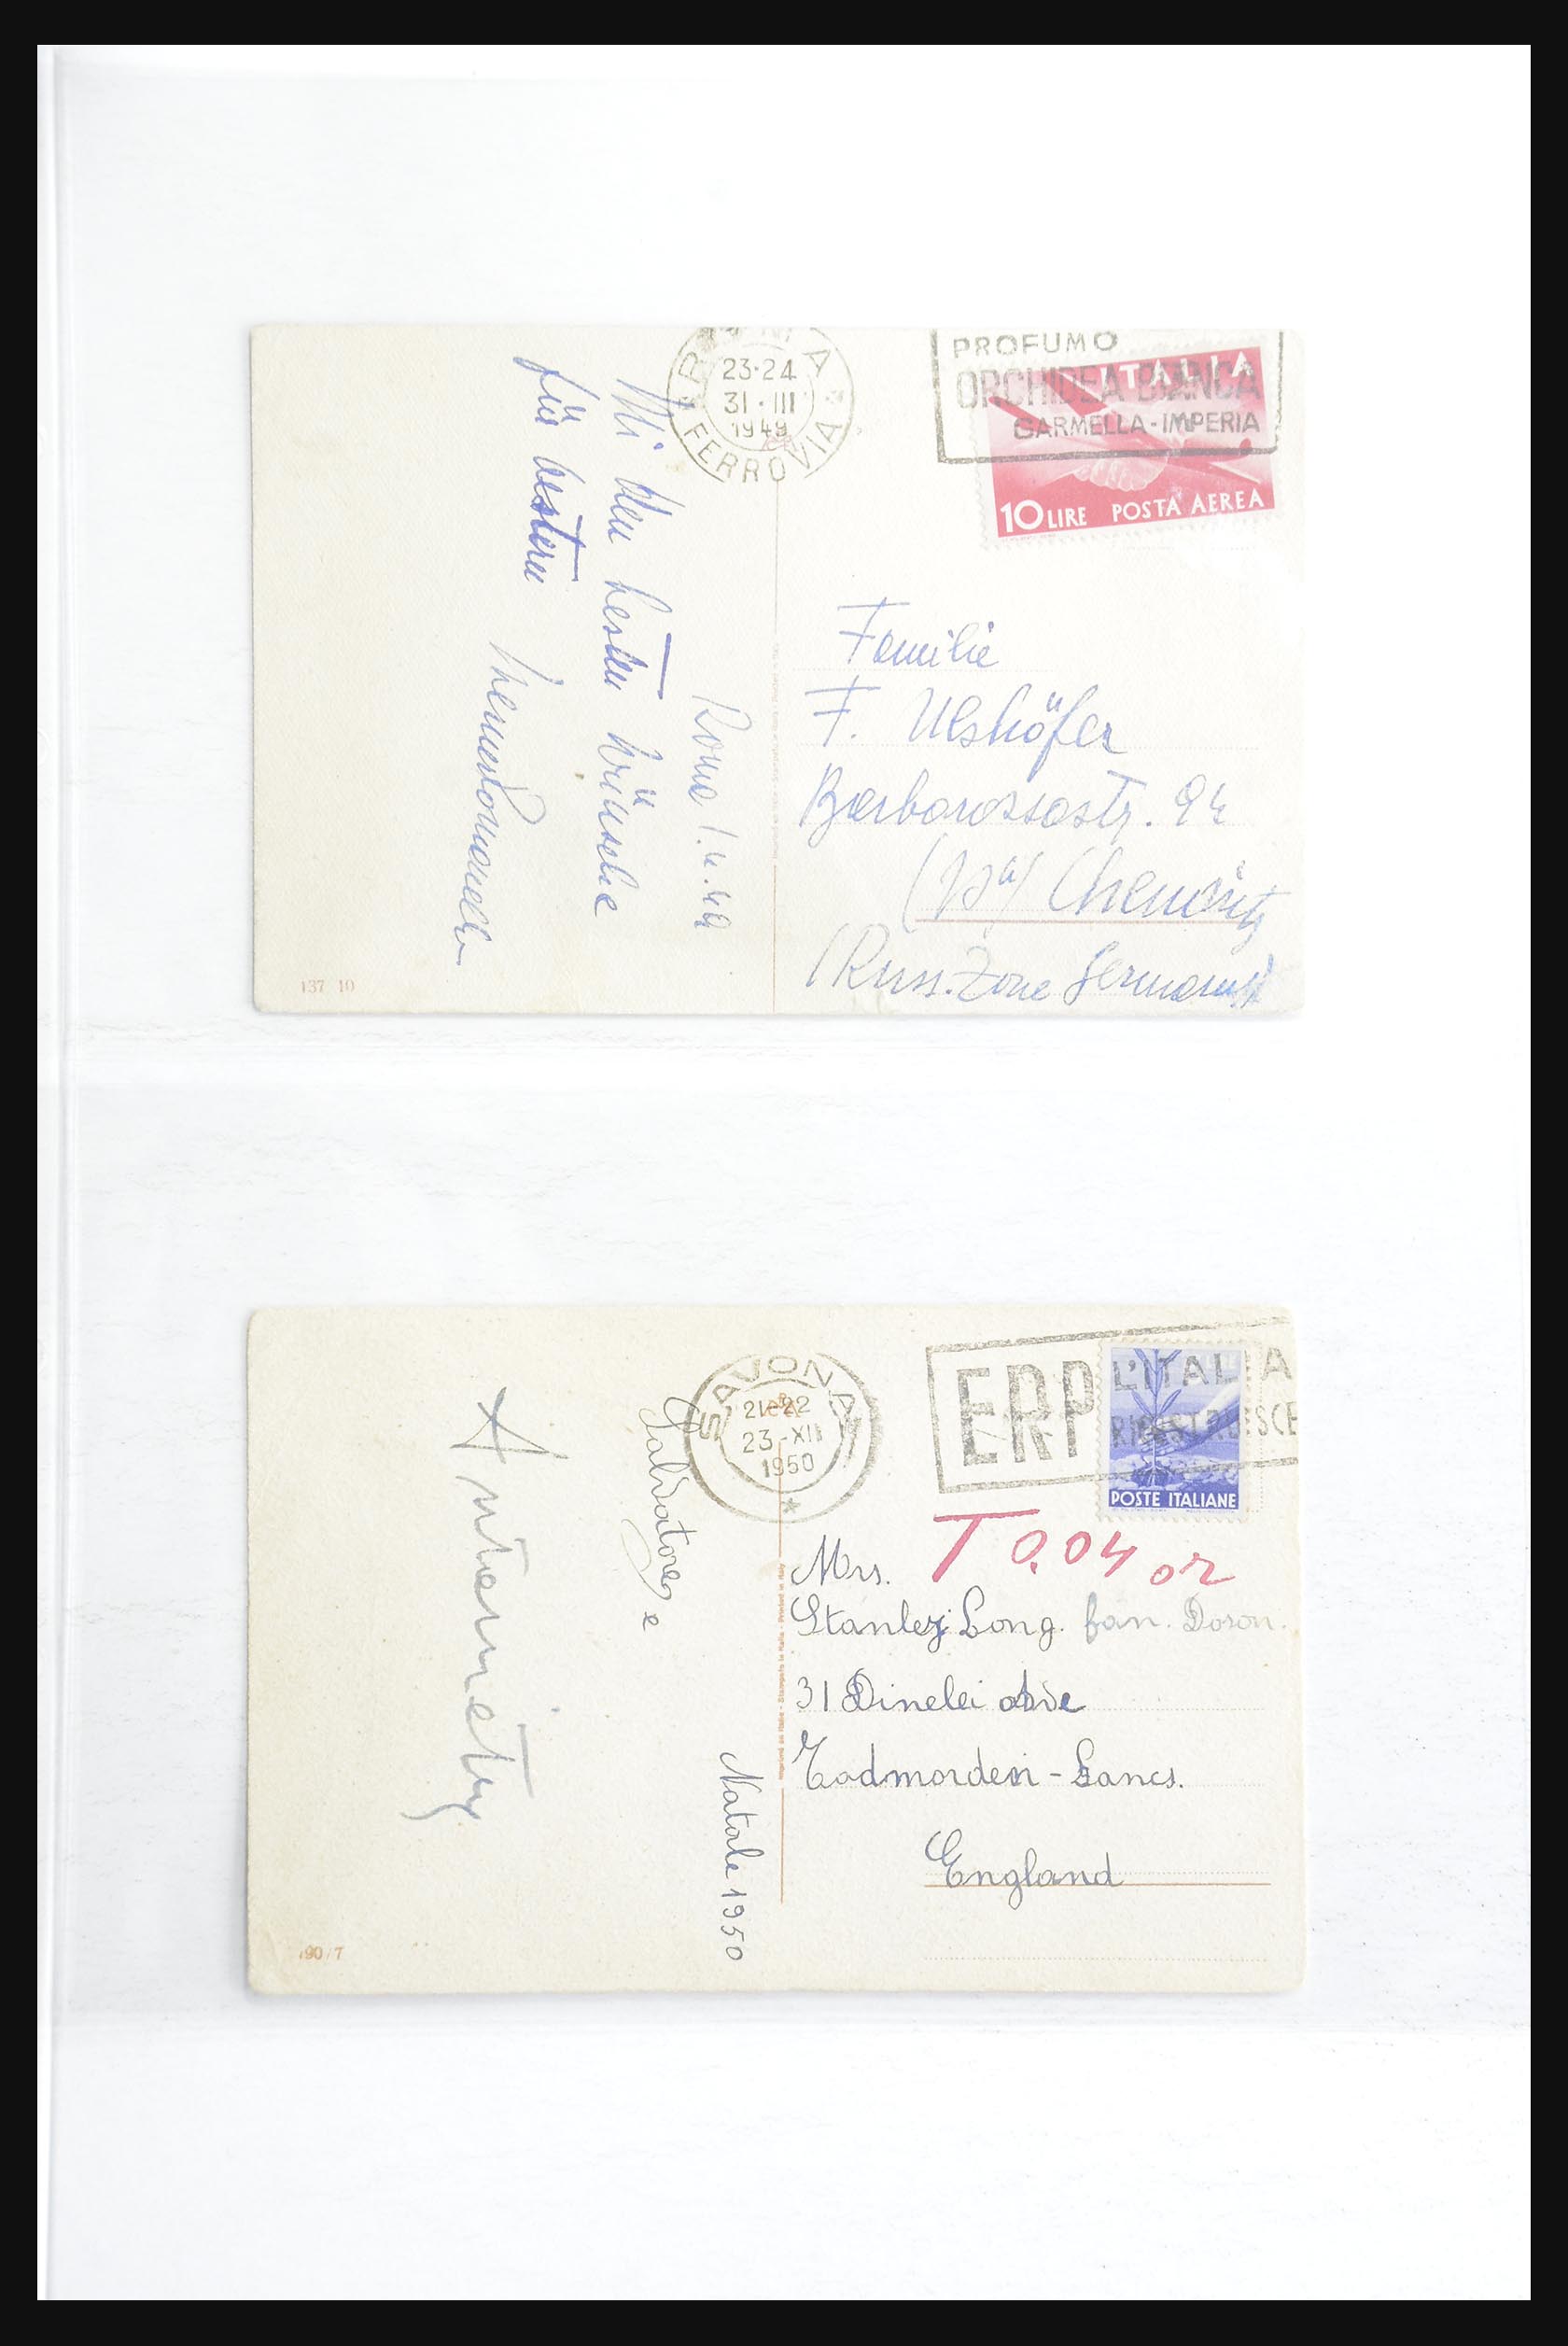 ROMA
23·24
31·III
1949
FERROVIA
PROFUMO
ORCHIDEA BIANCA
GARMELLA-IMPERIA
ITALIA
10 LIRE POSTA AEREA
Roma 1.4.49
Mi den besten Wünsche
für Ostern
Familie
F. Ulshöfer
Barbarossastr. 94
Chemnitz
(Russ. Zone Germania)
137 10
SAVONA
21-22
23-XII
1950
ERP L'ITALIA
RICOSTRUISCE
POSTE ITALIANE
T 0.04 or
Salvatore e
Natale 1950
Mrs.
Stanley Long. fan. Doson.
31 Dinelei Ave
Todmorden - Lancs.
England
Imprimé en Italie - Stampato in Italia - Printed in Italy
190/7